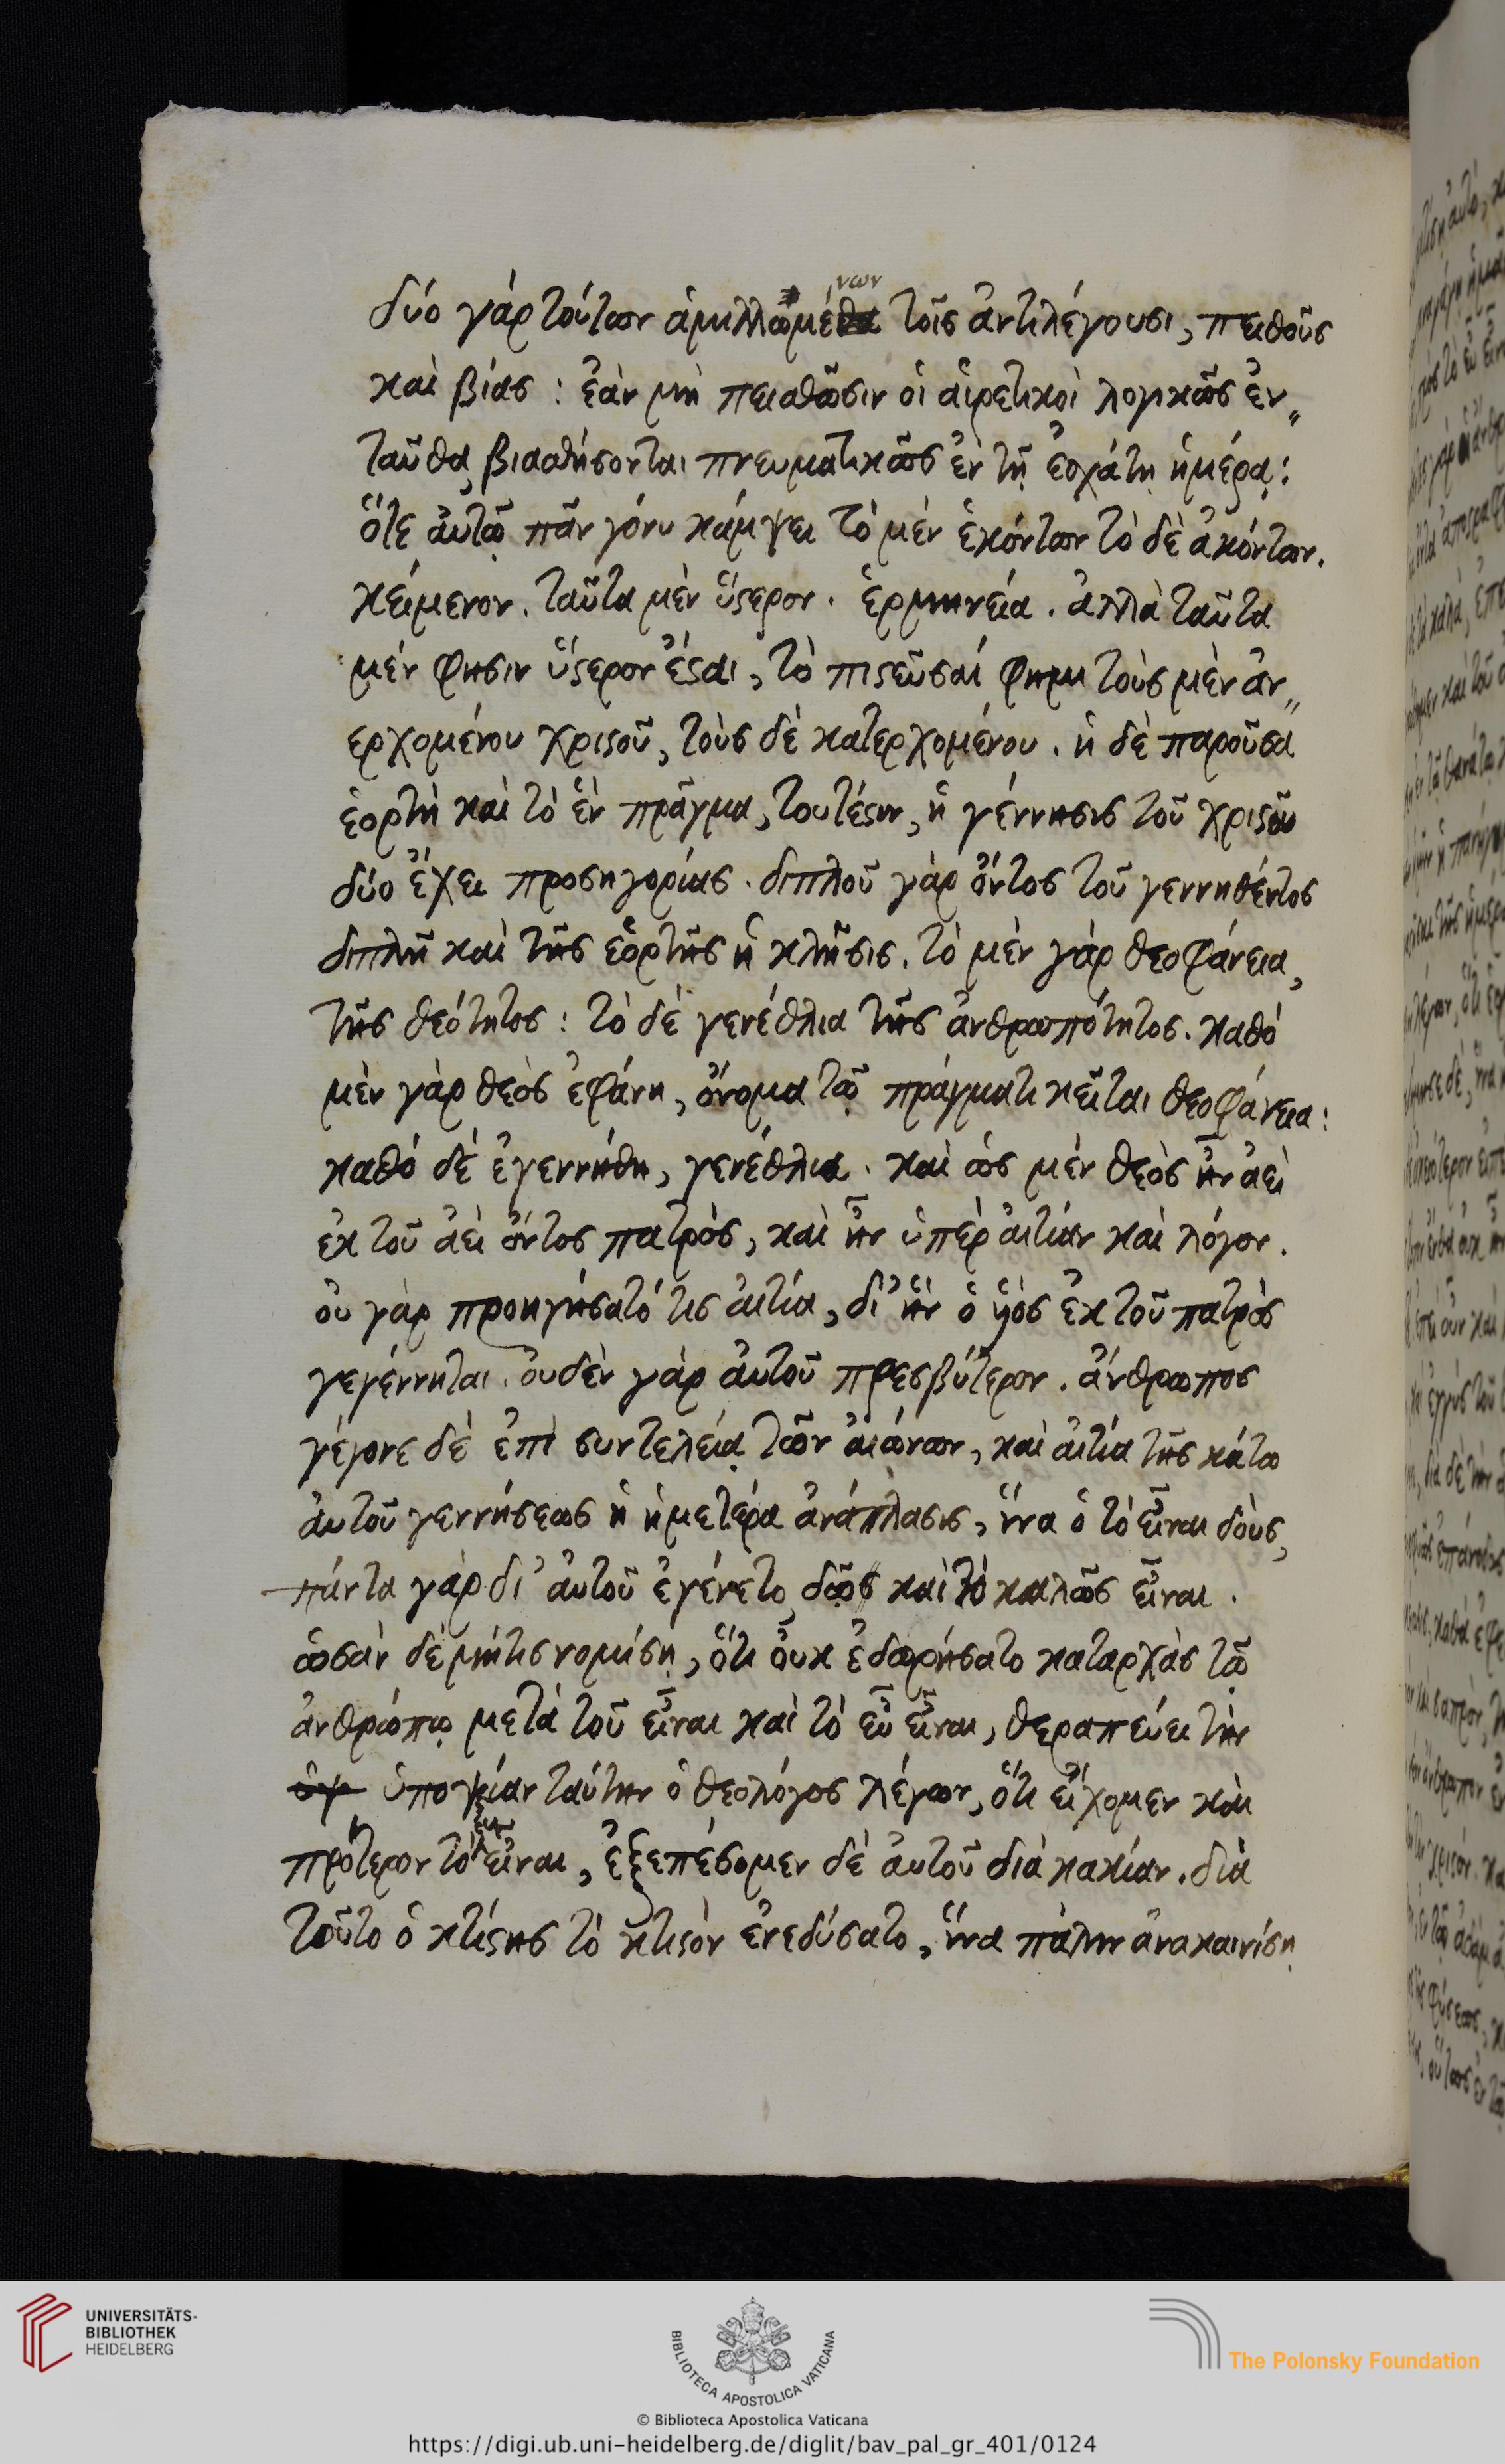 δύο γὰρ τούτων ἁμιλλωμένων τοῖς ἀντιλέγουσι, πειθοῦς
καὶ βίας : ἐὰν μὴ πεισθῶσιν οἱ αἱρετικοὶ λογικῶς ἐν„
ταῦθα, βιασθήσονται πνευματικῶς ἐν τῇ ἐσχάτῃ ἡμέρᾳ :
ὅτε αὐτῷ πᾶν γόνυ κάμψει τὸ μὲν ἑκόντων τὸ δὲ ἀκόντων.
κείμενον. ταῦτα μὲν ὕστερον. ἑρμηνεία. ἀλλὰ ταῦτα
μέν φησιν ὕστερον ἔσται, τὸ πιστεῦσαί φημι τοὺς μὲν ἀν„
ερχομένου χριστοῦ, τοὺς δὲ κατερχομένου. ἡ δὲ παροῦσα
ἑορτὴ καὶ τὸ ἓν πρᾶγμα, τουτέστιν, ἡ γέννησις τοῦ χριστοῦ
δύο ἔχει προσηγορίας. διπλοῦ γὰρ ὄντος τοῦ γεννηθέντος
διπλῆ καὶ τῆς ἑορτῆς ἡ κλῆσις. τὸ μὲν γὰρ θεοφάνεια,
τῆς θεότητος : τὸ δὲ γενέθλια τῆς ἀνθρωπότητος. καθὸ
μὲν γὰρ θεὸς ἐφάνη, ὄνομα τῷ πράγματι κεῖται θεοφάνεια :
καθὸ δὲ ἐγεννήθη, γενέθλια. καὶ ὡς μὲν θεὸς ἦν ἀεὶ
ἐκ τοῦ ἀεὶ ὄντος πατρὸς, καὶ ἦν ὑπὲρ αἰτίαν καὶ λόγον.
οὐ γὰρ προηγήσατό τις αἰτία, δι' ἣν ὁ υἱὸς ἐκ τοῦ πατρὸς
γεγέννηται. οὐδὲν γὰρ αὐτοῦ πρεσβύτερον. ἄνθρωπος
γέγονε δὲ ἐπὶ συντελείᾳ τῶν αἰώνων, καὶ αἰτία τῆς κάτω
αὐτοῦ γεννήσεως ἡ ἡμετέρα ἀνάπλασις, ἵνα ὁ τὸ εἶναι δοὺς,
πάντα γὰρ δι' αὐτοῦ ἐγένετο, δῷς καὶ τὸ καλῶς εἶναι.
ὡσὰν δὲ μήτις νομίσῃ, ὅτι οὐκ ἐδωρήσατο καταρχὰς τῷ
ἀνθρώπῳ μετὰ τοῦ εἶναι καὶ τὸ εὖ εἶναι, θεραπεύει τὴν
ὑπο ὑποψίαν ταύτην ὁ θεολόγος λέγων, ὅτι εἴχομεν καὶ
πρότερον τὸ εὖ εἶναι, ἐξεπέσομεν δὲ αὐτοῦ διὰ κακίαν. διὰ
τοῦτο ὁ κτίστης τὸ κτιστὸν ἐνεδύσατο, ἵνα πάλιν ἀνακαινίσῃ
UNIVERSITÄTS-
BIBLIOTHEK
HEIDELBERG
BIBLIOTECA APOSTOLICA VATICANA
The Polonsky Foundation
© Biblioteca Apostolica Vaticana
https://digi.ub.uni-heidelberg.de/diglit/bav_pal_gr_401/0124